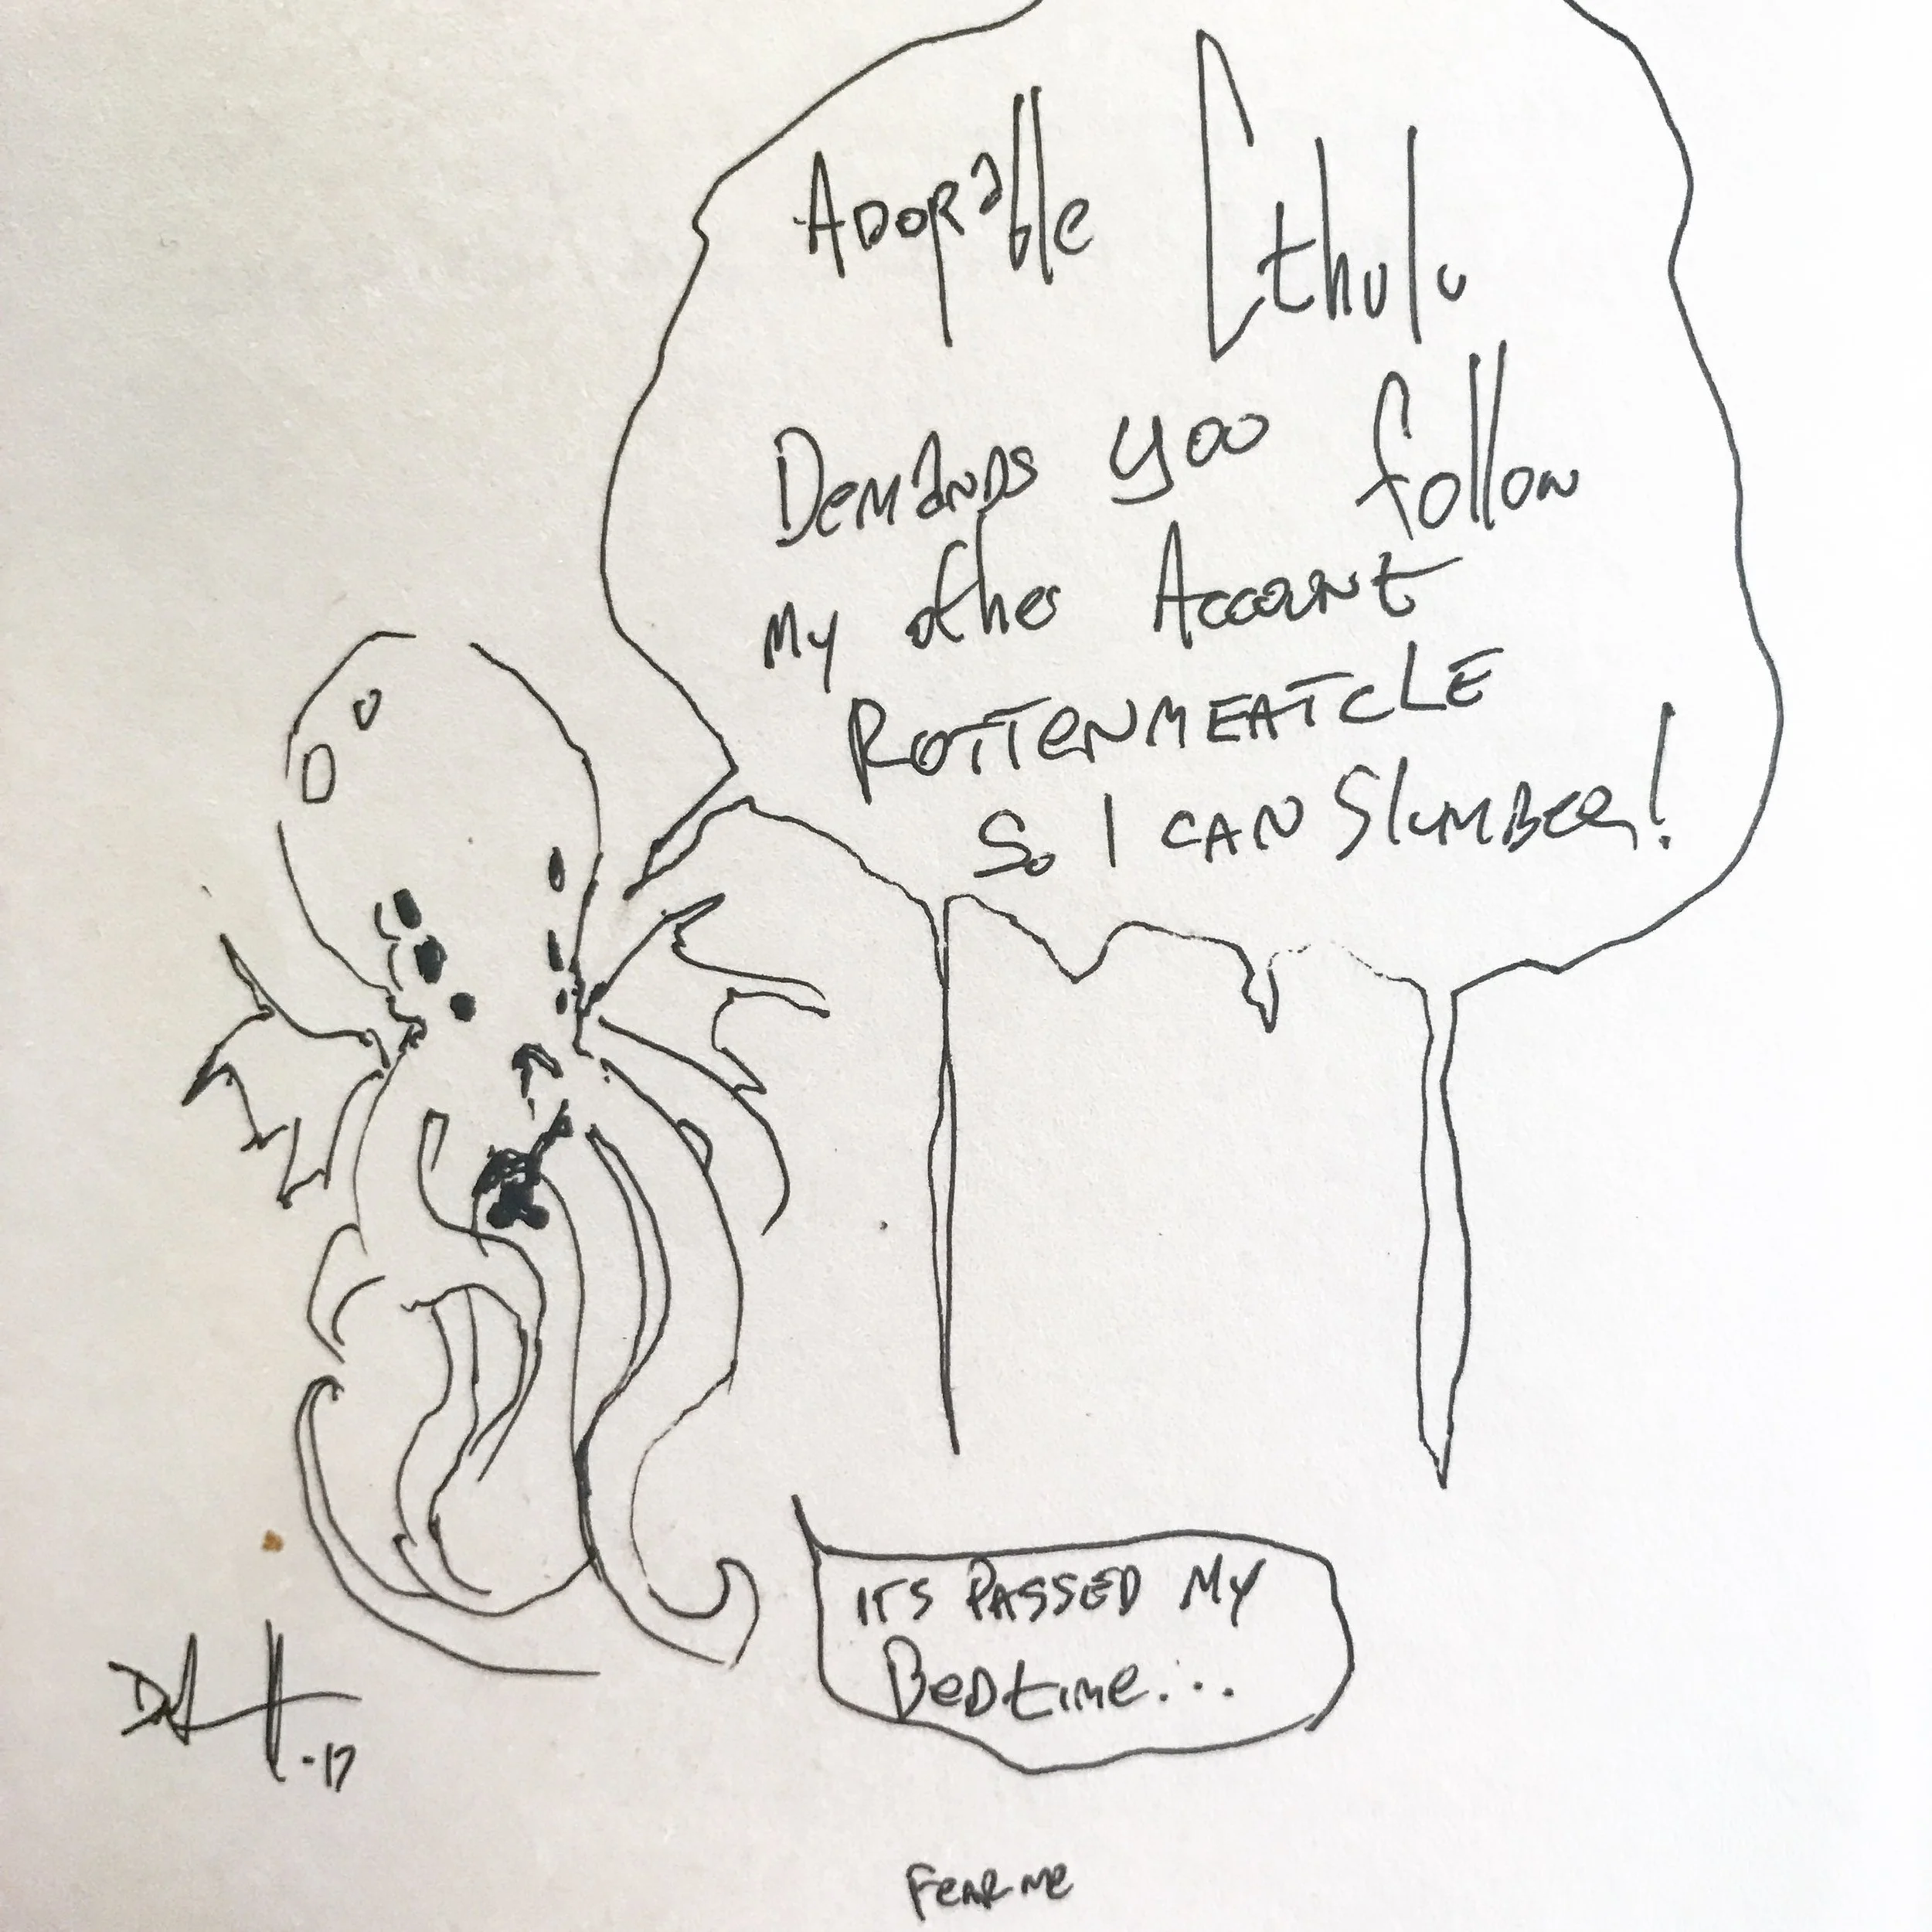 Adorable Cthulu
Demands you follow
my other Account
ROTTENMEATCLE
So I CAN Slumber!
ITS PASSED MY
Bedtime...
-17
Fear me